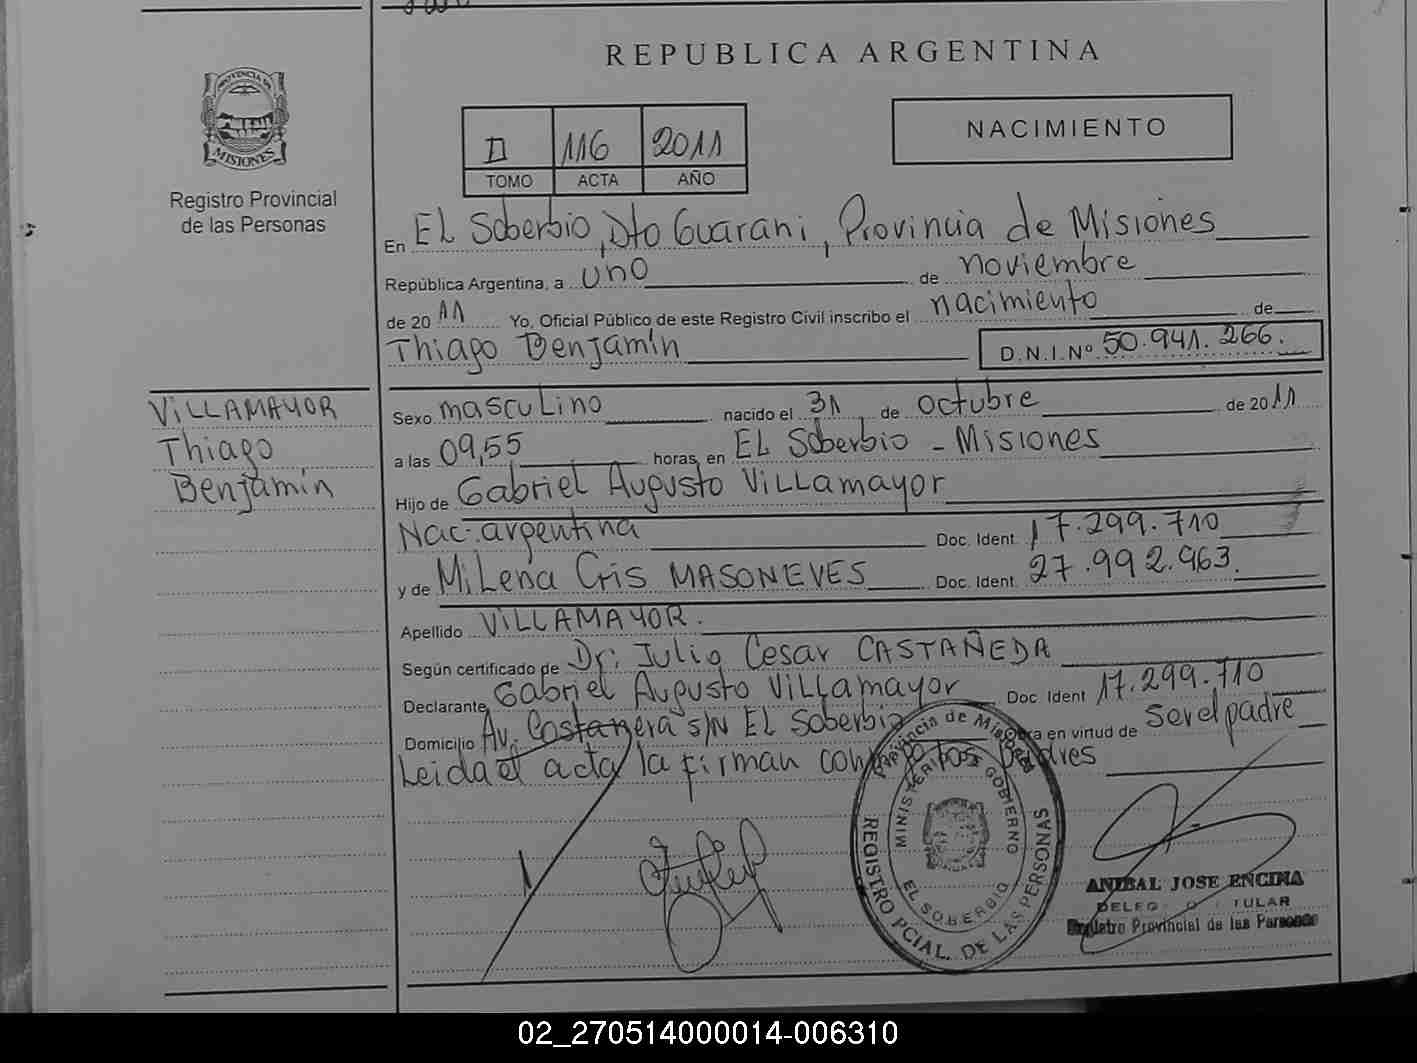 REPUBLICA ARGENTINA
PROVINCIA DE
MISIONES
Registro Provincial
de las Personas
II 116 2011
TOMO ACTA AÑO
NACIMIENTO
En EL Soberbio, Dto Guarani, Provincia de Misiones
República Argentina, a uno de noviembre
de 2011 Yo, Oficial Público de este Registro Civil inscribo el nacimiento de
Thiago Benjamín D.N.I. Nº 50.941.266.
VILLAMAYOR
Thiago
Benjamín
Sexo masculino nacido el 31 de octubre de 2011
a las 09,55 horas, en EL Soberbio - Misiones
Hijo de Gabriel Augusto Villamayor
Nac. argentina Doc. Ident. 17.299.710
y de Milena Cris MASONEVES Doc. Ident. 27.992.963.
Apellido VILLAMAYOR.
Según certificado de Dr. Julio Cesar CASTAÑEDA
Declarante Gabriel Augusto Villamayor Doc. Ident 17.299.710
Domicilio Av. Costanera s/N EL Soberbio Obra en virtud de ser el padre
Leida el acta la firman con ambos padres
Provincia de Misiones
MINISTERIO DE GOBIERNO
EL SOBERBIO
REGISTRO PCIAL. DE LAS PERSONAS
ANIBAL JOSE ENCINA
Registro Provincial de las Personas
02_270514000014-006310